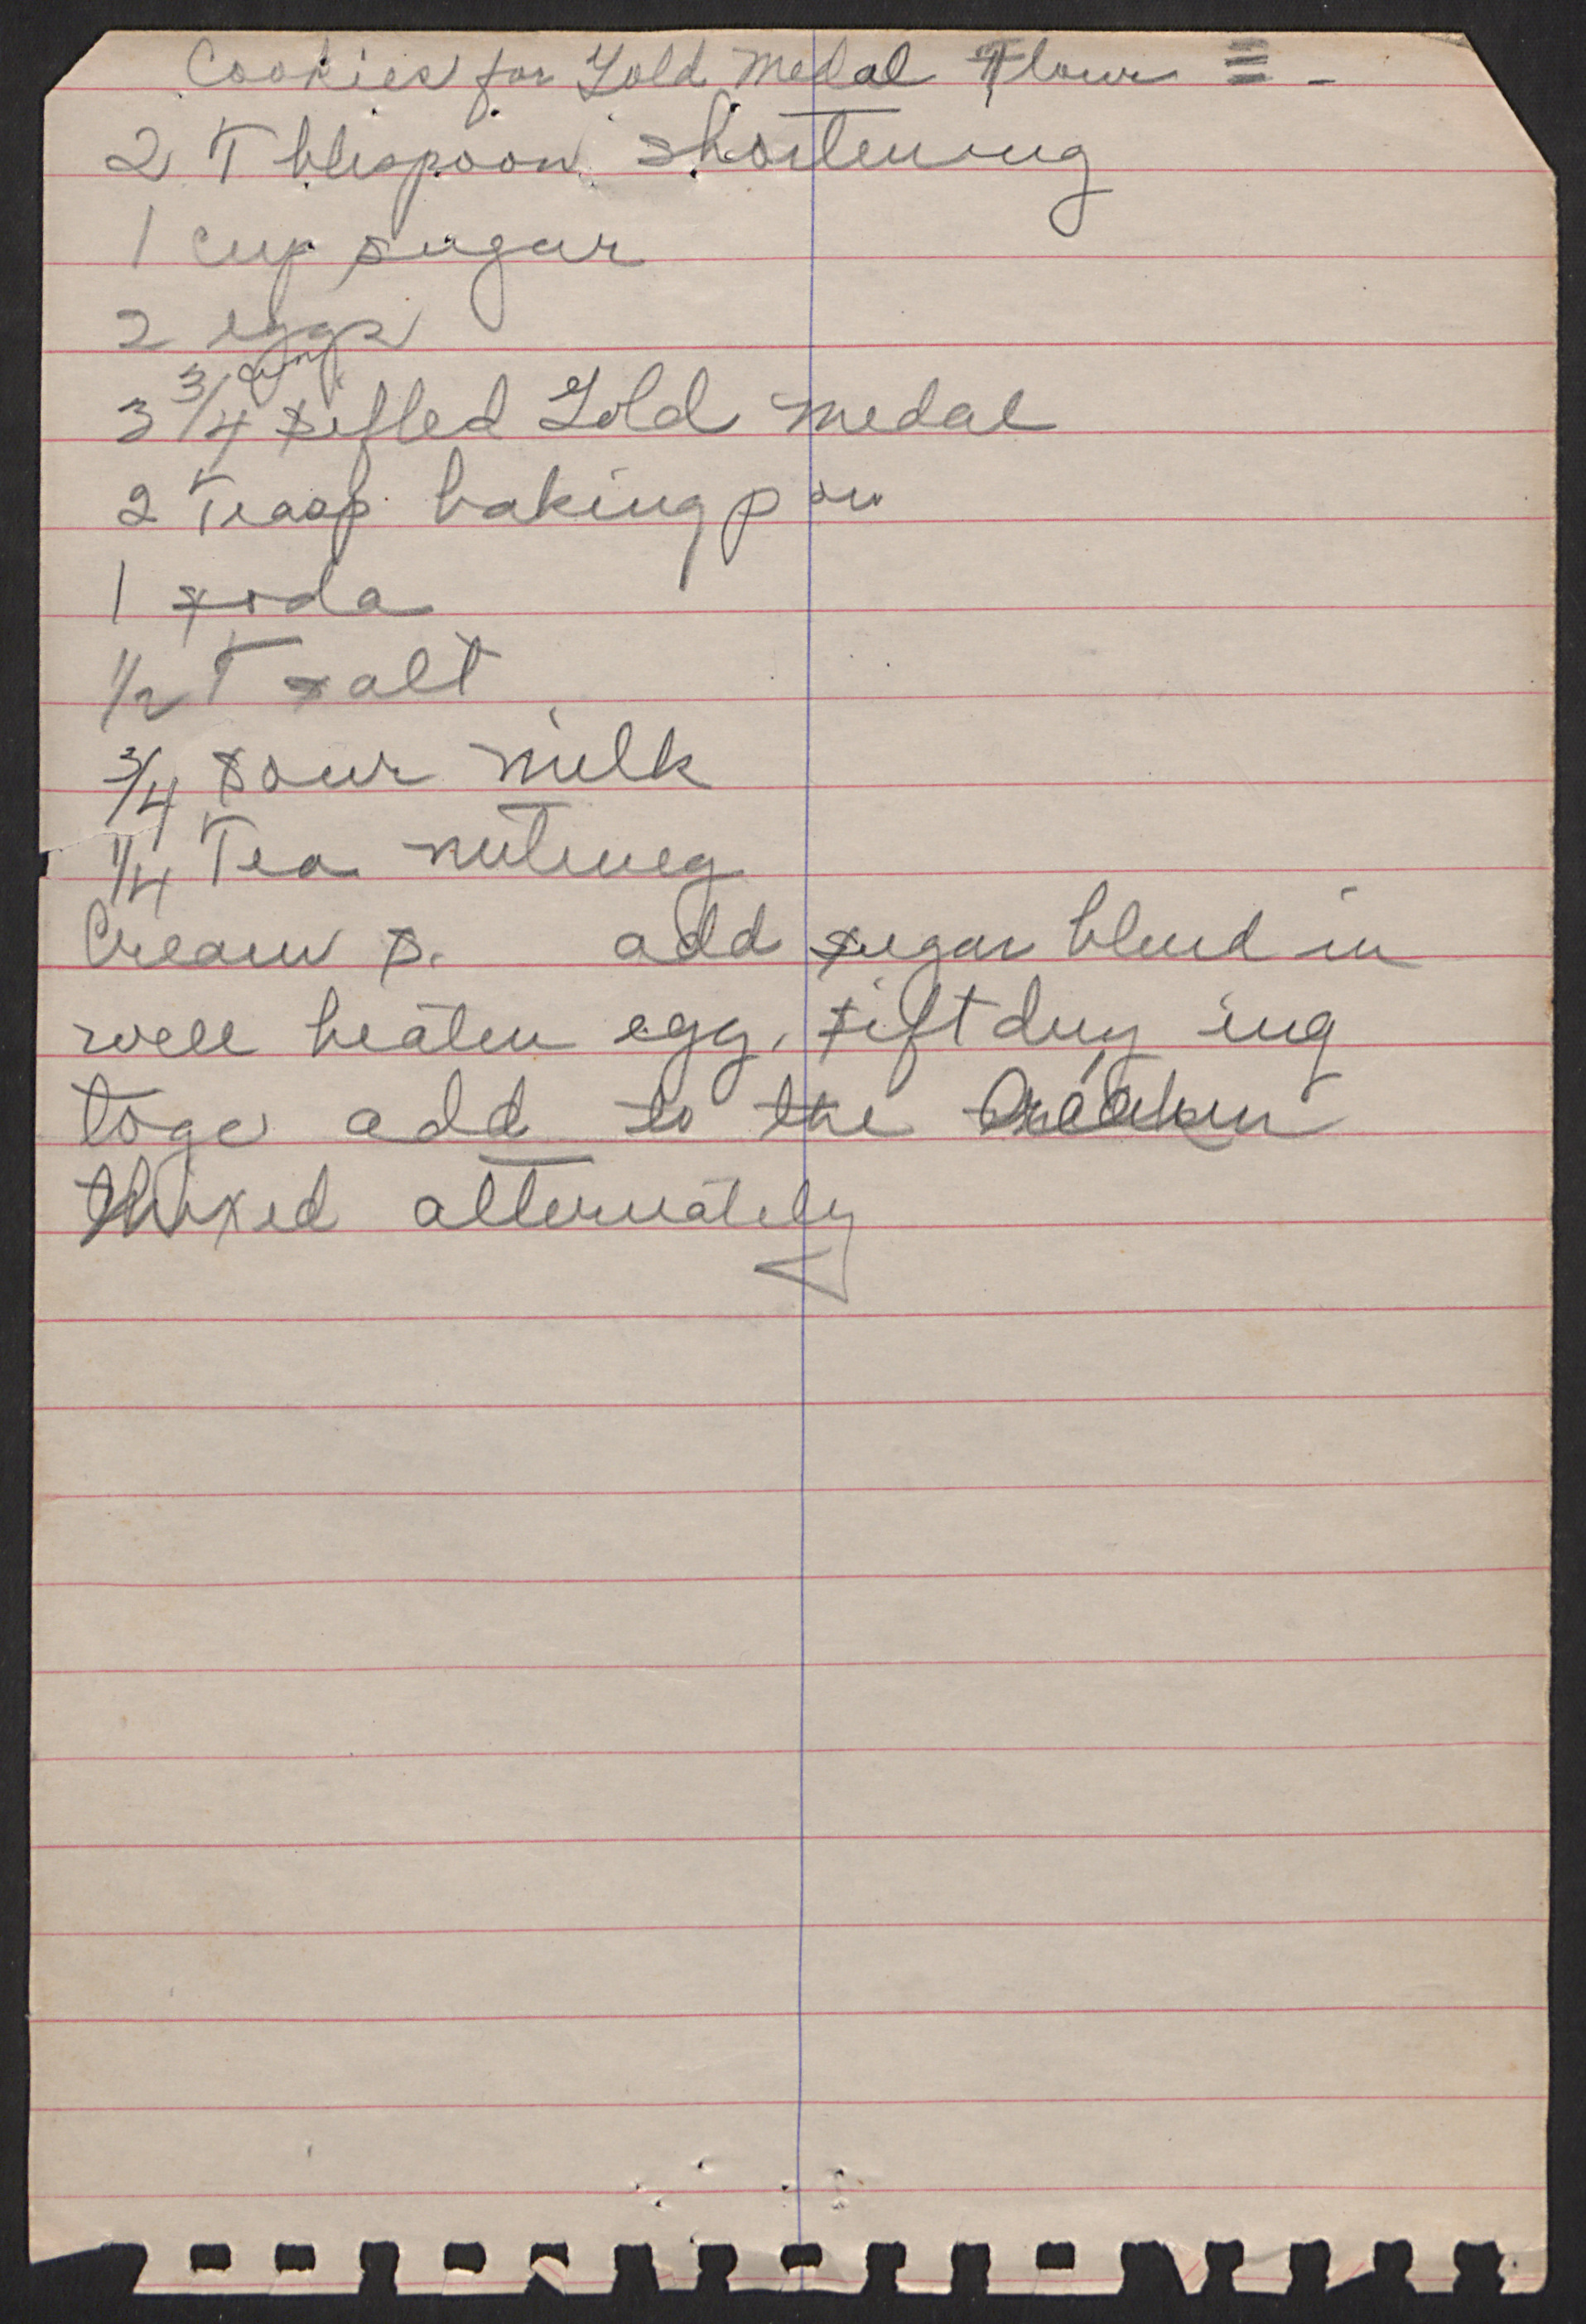 Cookies for Gold Medal Flour
2 Tblespoon shortening
1 cup sugar
2 eggs
cup
3 3/4 sifted Gold Medal
2 Teasp baking pow
1 soda
1/2 T salt
3/4 sour milk
1/4 Tea nutmeg
Cream s. add sugar blend in
well beaten egg, sift dry ing
toge add to the
mixed alternately